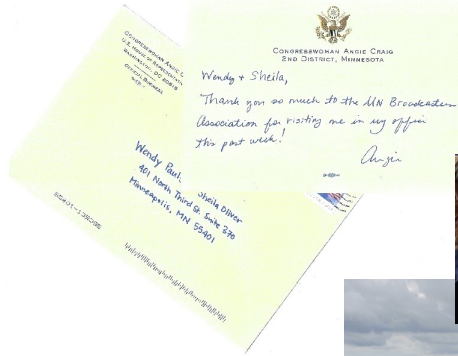 CONGRESSWOMAN ANGIE CRAIG
2ND DISTRICT, MINNESOTA
Wendy + Sheila,
Thank you so much to the MN Broadcasters
Association for visiting me in my office
this past week!
Angie
CONGRESSWOMAN ANGIE C
U.S. HOUSE OF REPRESENTATI
WASHINGTON, DC 20515
OFFICIAL BUSINESS
Wendy Paul
Sheila Oliver
401 North Third St. Suite 370
Minneapolis, MN 55401